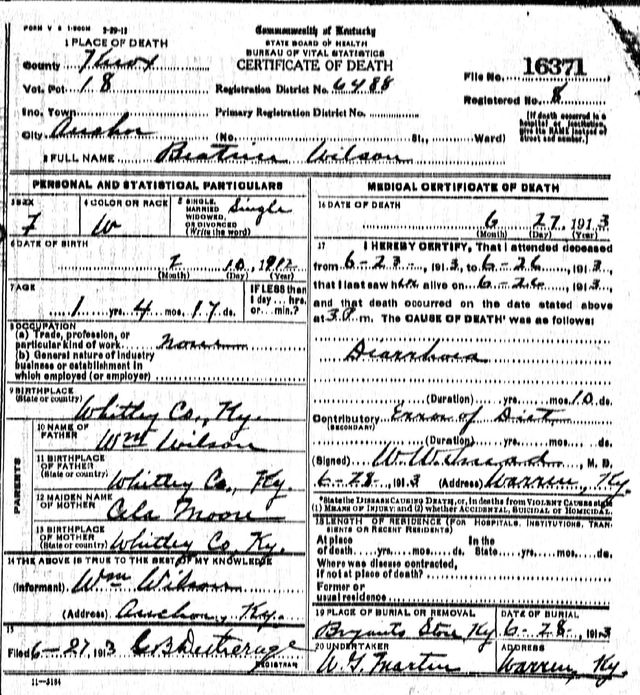 FORM V S 1-500M 3-29-13
Commonwealth of Kentucky
STATE BOARD OF HEALTH
BUREAU OF VITAL STATISTICS
CERTIFICATE OF DEATH
1 PLACE OF DEATH
County Knox
Vot. Pct. 18
Registration District No. 6488
File No. 16371
Inc. Town
Primary Registration District No.
Registered No. 8
City Anchor (No. St., Ward)
[If death occurred in a hospital or institution, give its NAME instead of street and number.]
2 FULL NAME Beatrice Wilson
PERSONAL AND STATISTICAL PARTICULARS
3 SEX F
4 COLOR OR RACE W
5 SINGLE, MARRIED WIDOWED, OR DIVORCED (Write the word) Single
6 DATE OF BIRTH
10, 1912
(Month) (Day) (Year)
7 AGE
1 yrs. 4 mos. 17 ds.
IF LESS than 1 day... hrs. or... min.?
8 OCCUPATION
(a) Trade, profession, or particular kind of work None
(b) General nature of industry business or establishment in which employed (or employer)
9 BIRTHPLACE
(State or country) Whitley Co., Ky.
PARENTS
10 NAME OF FATHER Wm Wilson
11 BIRTHPLACE OF FATHER (State or country) Whitley Co., Ky.
12 MAIDEN NAME OF MOTHER Cela Moore
13 BIRTHPLACE OF MOTHER (State or country) Whitley Co, Ky.
14 THE ABOVE IS TRUE TO THE BEST OF MY KNOWLEDGE
(Informant) Wm Wilson
(Address) Anchor, Ky.
15
Filed 6-27, 1913
REGISTRAR
11-5184
MEDICAL CERTIFICATE OF DEATH
16 DATE OF DEATH
6 27, 1913
(Month) (Day) (Year)
17 I HEREBY CERTIFY, That I attended deceased
from 6-23, 1913, to 6-26, 1913,
that I last saw her alive on 6-26, 1913,
and that death occurred on the date stated above
at 3 P. m. The CAUSE OF DEATH* was as follows:
Diarrhoea
(Duration) yrs. mos. 10 ds.
Contributory Error of Diet
(SECONDARY)
(Duration) yrs. mos. ds.
(Signed) M. D.
6-28, 1913 (Address) Warren, Ky.
*State the DISEASE CAUSING DEATH, or, in deaths from VIOLENT CAUSES state
(1) MEANS OF INJURY; and (2) whether ACCIDENTAL, SUICIDAL or HOMICIDAL.
18 LENGTH OF RESIDENCE (FOR HOSPITALS, INSTITUTIONS, TRANSIENTS OR RECENT RESIDENTS)
At place of death yrs. mos. ds. In the State yrs. mos. ds.
Where was disease contracted,
If not at place of death?
Former or
usual residence
19 PLACE OF BURIAL OR REMOVAL
Bryants Store Ky.
DATE OF BURIAL
6-28, 1913
20 UNDERTAKER
W. G. Martin
ADDRESS
Warren, Ky.